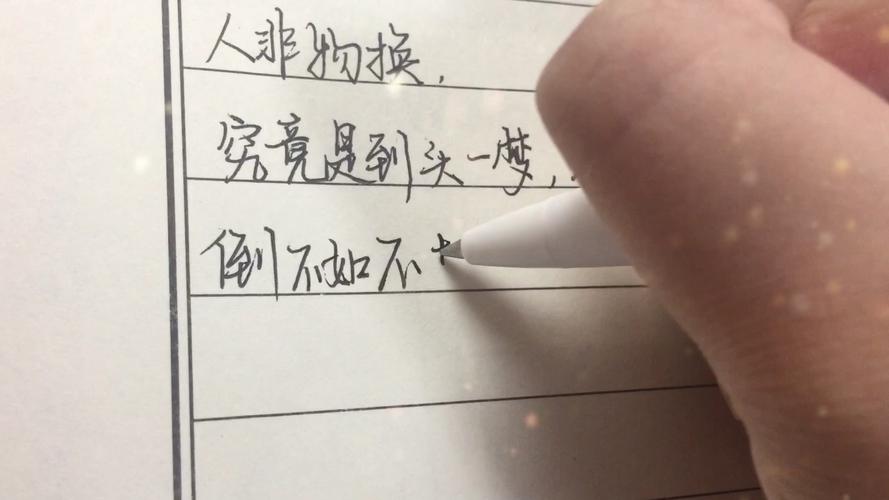 人非物换，
究竟是到头一梦，
倒不如不